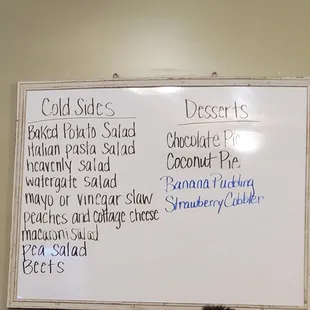 Cold Sides
Baked Potato Salad
Italian pasta salad
heavenly salad
watergate salad
mayo or vinegar slaw
peaches and cottage cheese
macaroni salad
pea salad
Beets
Desserts
Chocolate Pie
Coconut Pie
Banana Pudding
Strawberry Cobbler